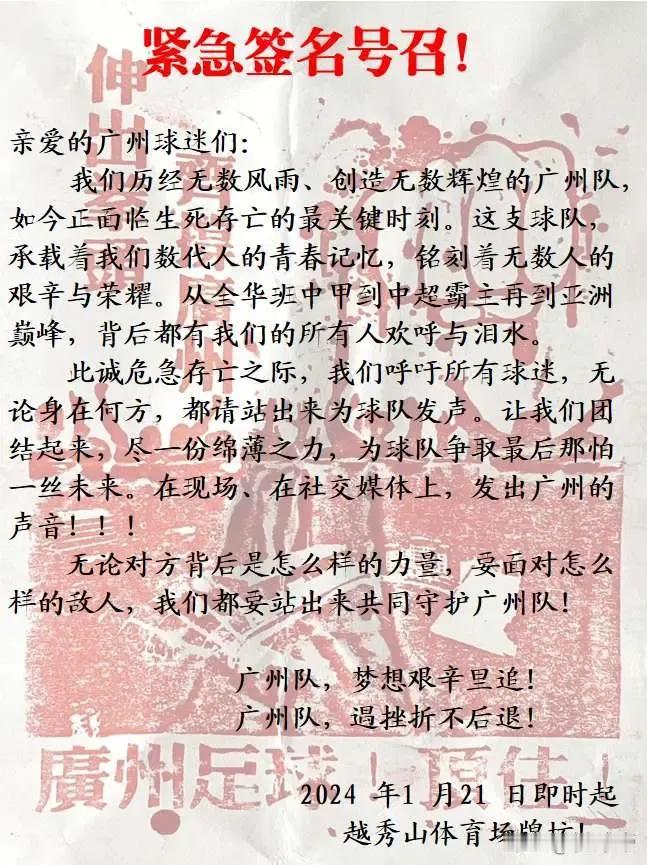 紧急签名号召！
伸出援手
齐撑廣州
亲爱的广州球迷们：
我们历经无数风雨、创造无数辉煌的广州队，
如今正面临生死存亡的最关键时刻。这支球队，
承载着我们数代人的青春记忆，铭刻着无数人的
艰辛与荣耀。从全华班中甲到中超霸主再到亚洲
巅峰，背后都有我们的所有人欢呼与泪水。
此诚危急存亡之际，我们呼吁所有球迷，无
论身在何方，都请站出来为球队发声。让我们团
结起来，尽一份绵薄之力，为球队争取最后那怕
一丝未来。在现场、在社交媒体上，发出广州的
声音！！！
无论对方背后是怎么样的力量，要面对怎么
样的敌人，我们都要站出来共同守护广州队！
广州队，梦想艰辛里追！
广州队，遇挫折不后退！
廣州足球！頂住！
2024 年1 月21 日即时起
越秀山体育场牌坊！